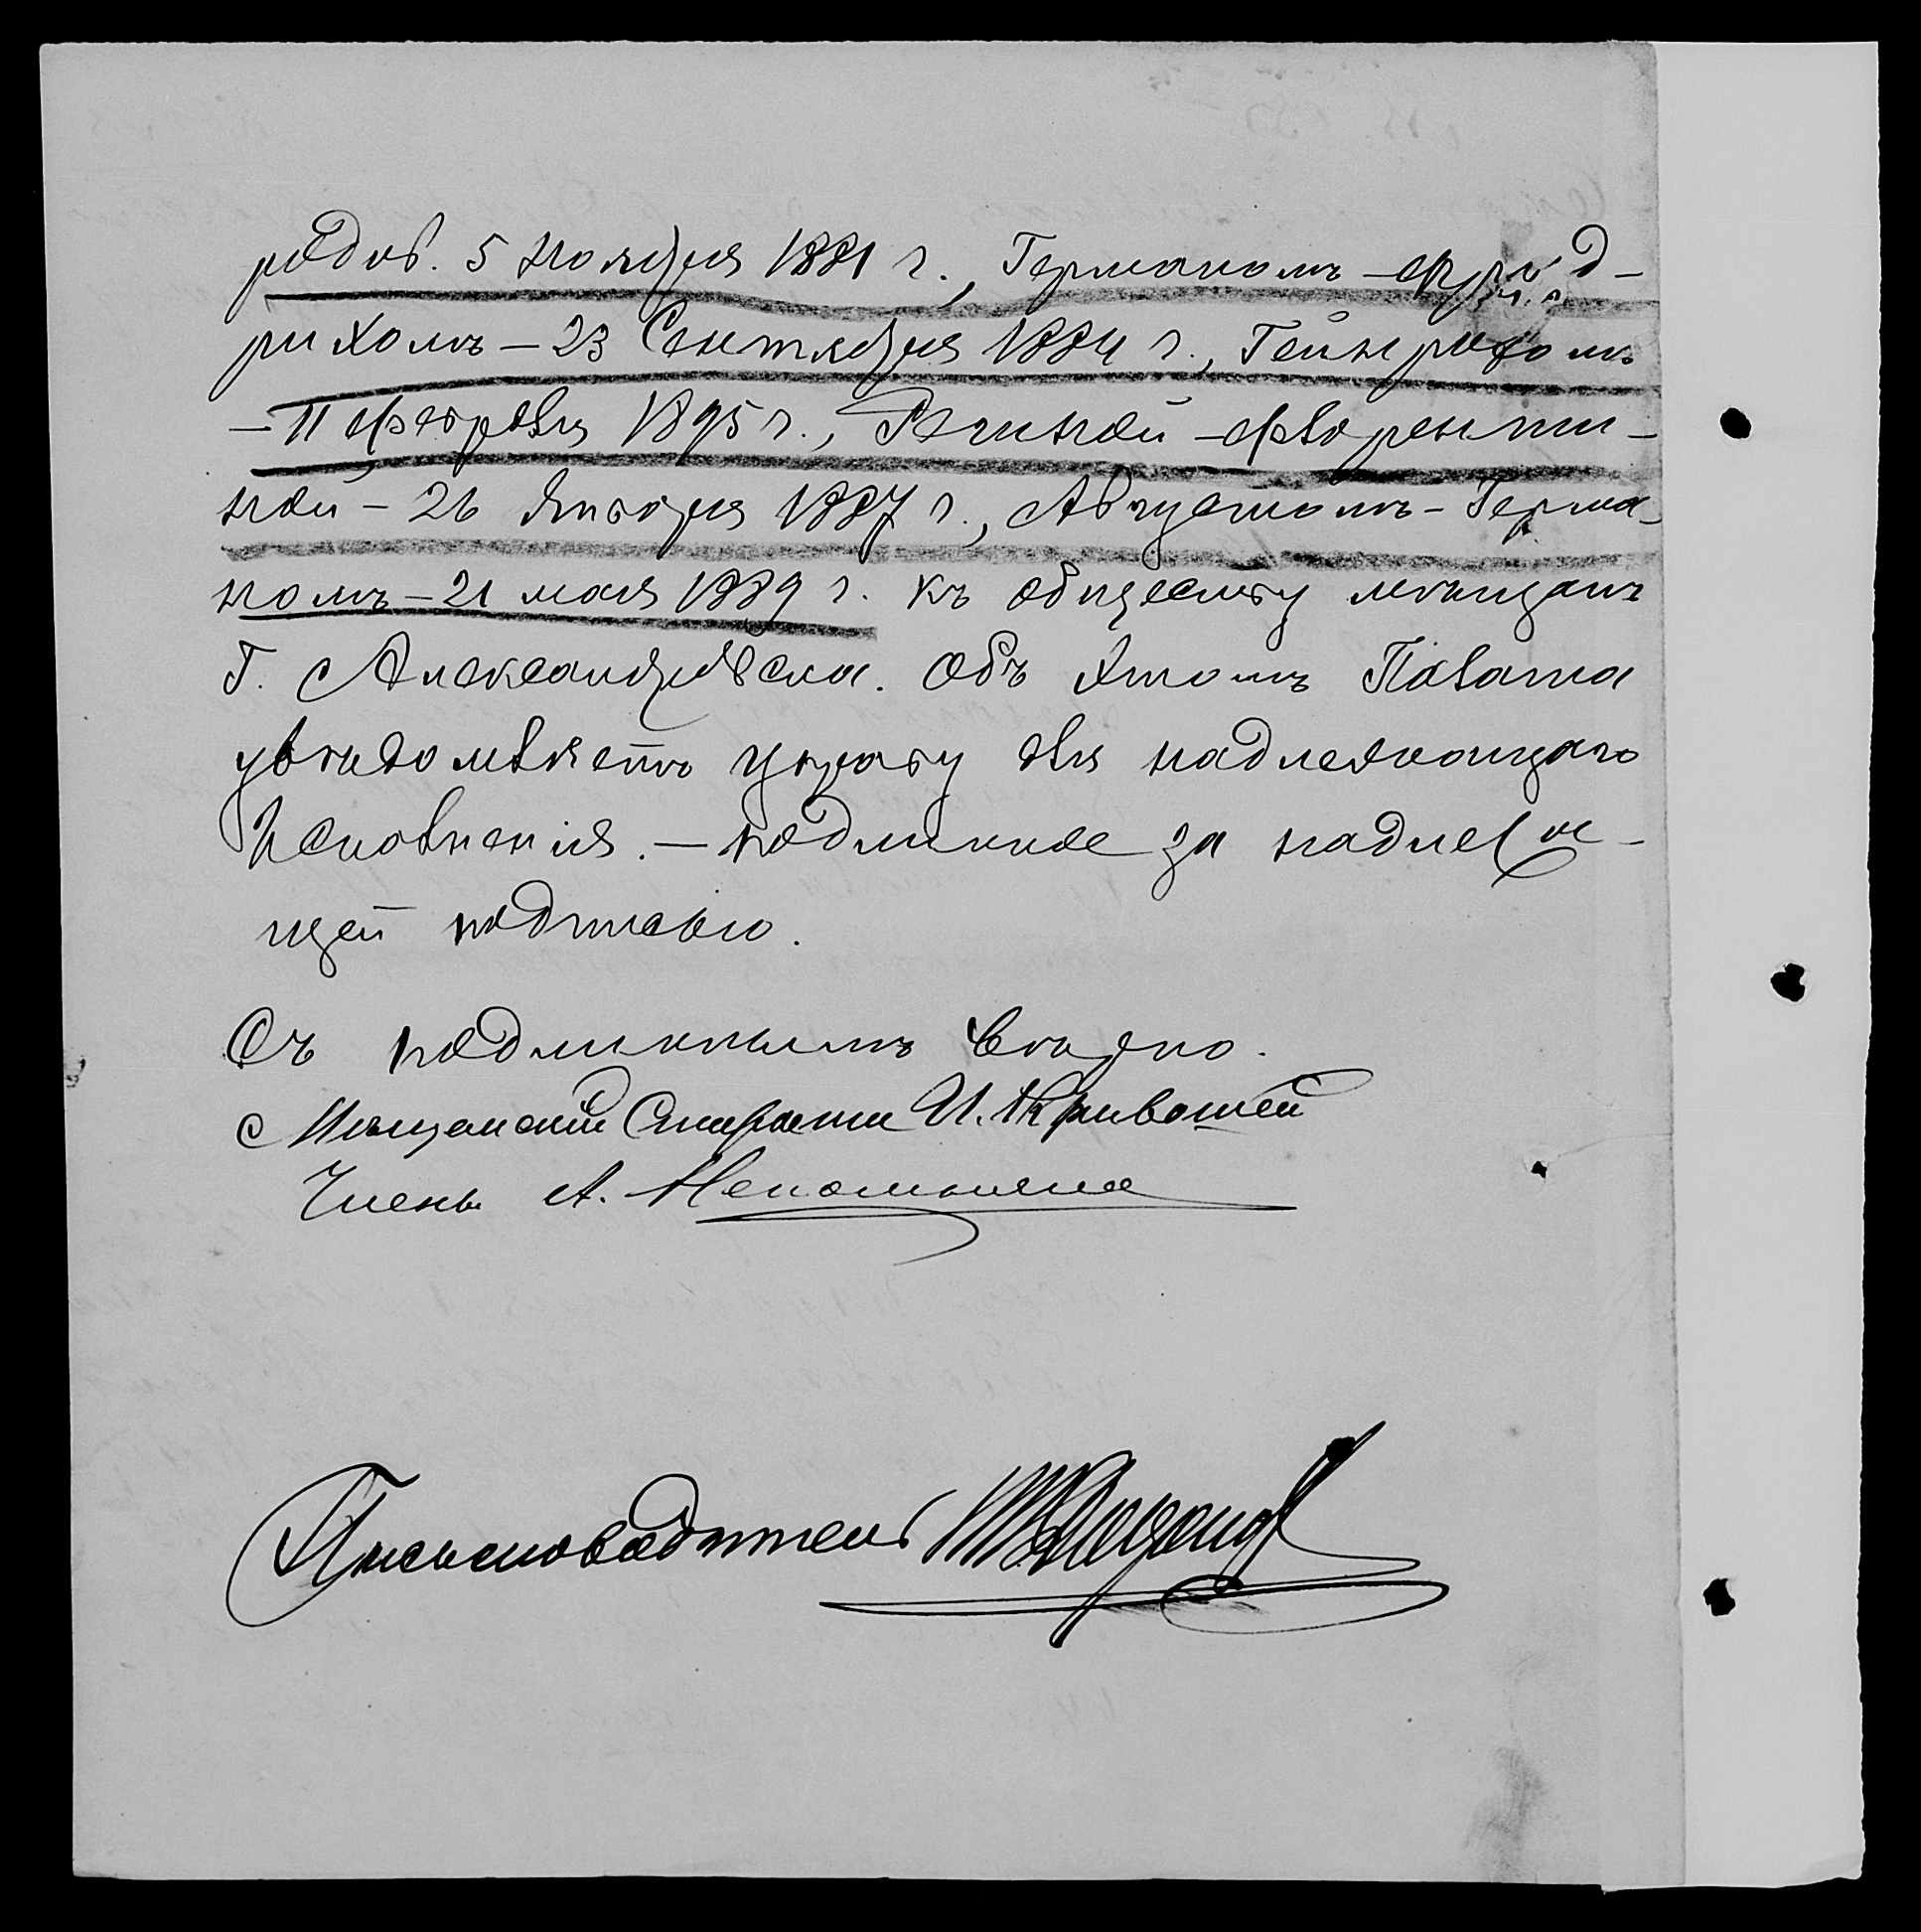 родив. 5 Ноября 1881 г., Германомъ-Фрид-
рихомъ – 23 Сентября 1884 г., Гейнрихомъ
– 11 Февраля 1895 г., Региной-Флоренти-
ной – 26 Января 1887 г., Августомъ-Герма-
номъ – 21 мая 1889 г. къ обществу мѣщанъ
г. Александровска. Объ этомъ Палата
увѣдомляетъ управу для надлежащаго
исполнения. – Подлинное за надлежа-
щей подписью.
Съ подлиннымъ вѣрно.
Мѣщанскій Староста И. Кривошей
Членъ А.
Письмоводитель